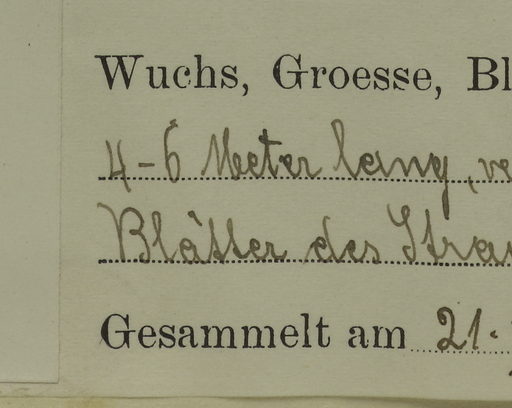 Wuchs, Groesse, Bl
4-6 Meter lang, ve
Blätter des Stra
Gesammelt am 21.